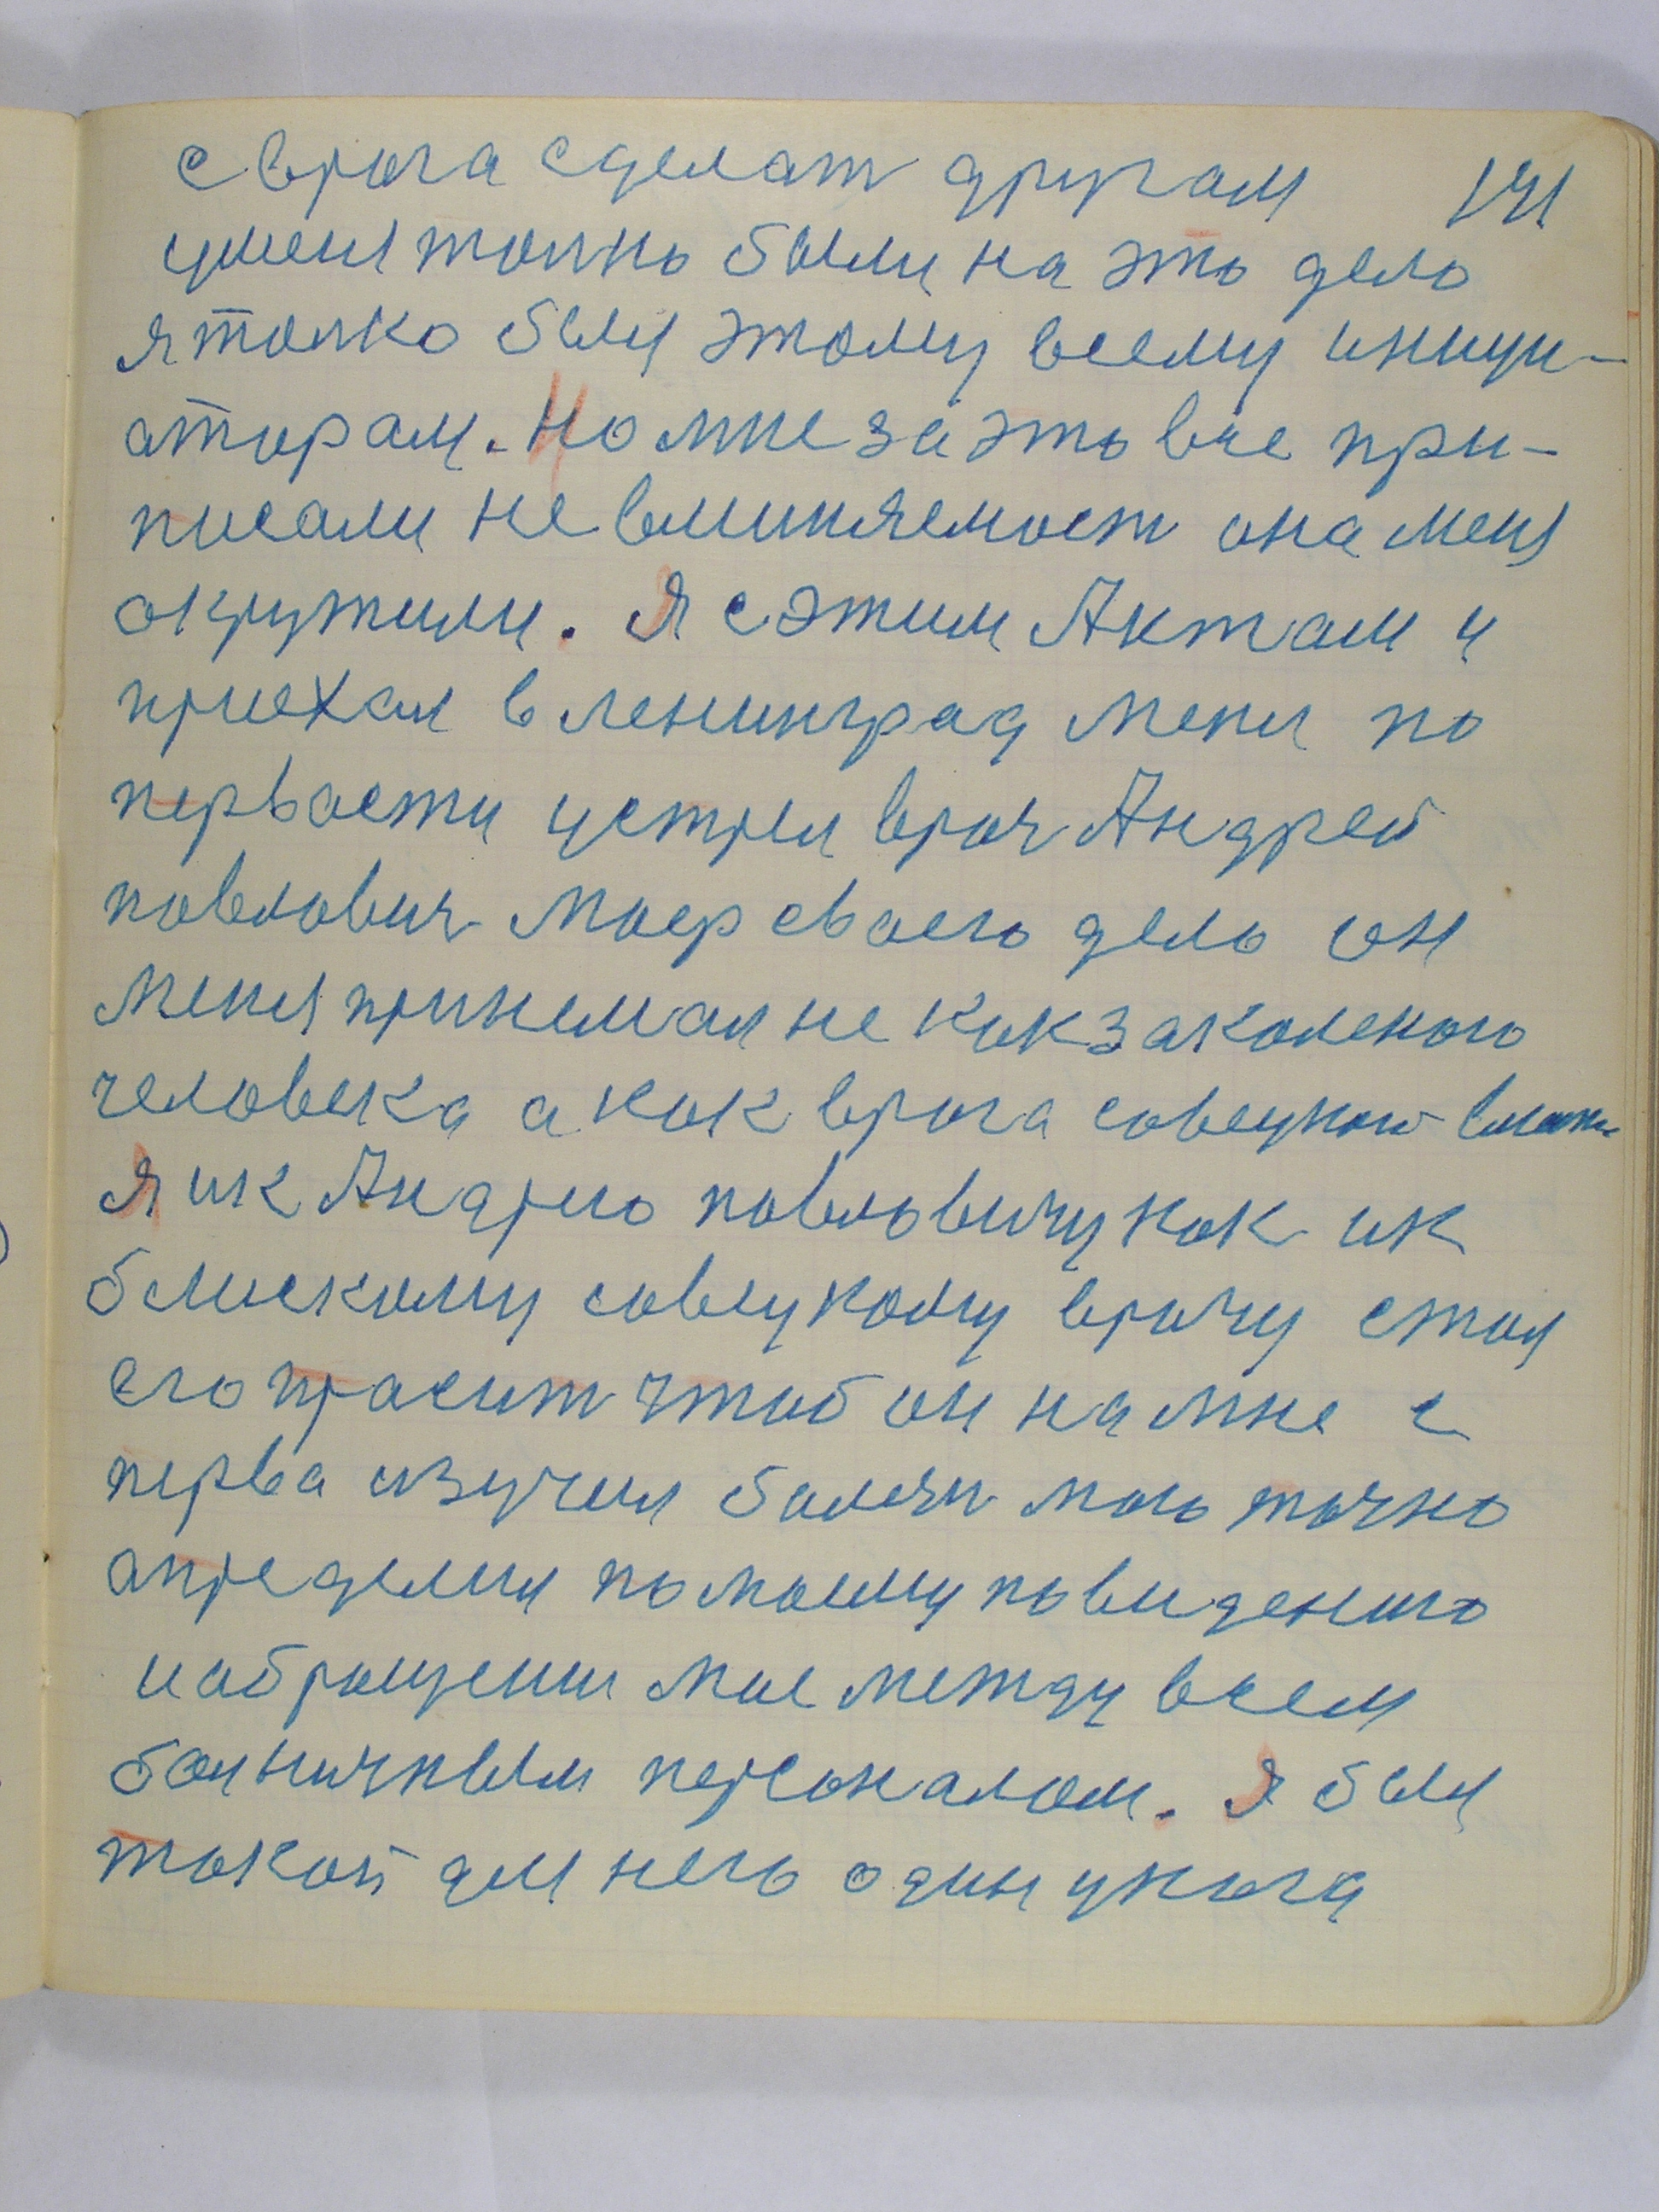 с врога сделат другам 141
уменя точно были на это дело
я толко был этому всему иници-
аторам. Но мне за это вче при-
писали не вминяемост она меня
окружили. Я с этим Актам и
приехал в ленинград меня по
первости устрел врач Андрей
повлович Моер своего дело он
меня принемал не как законеного
человека а как врога совецкой власти
Я ик Андрею повловичу как ик
блискому совецкому врачу стал
его прасит чтоб он на мне с
перва изучил болезн мою точно
апределил по моему повидению
и оброщении мое между всем
болничным персоналом. Я был
такой для него один у кога